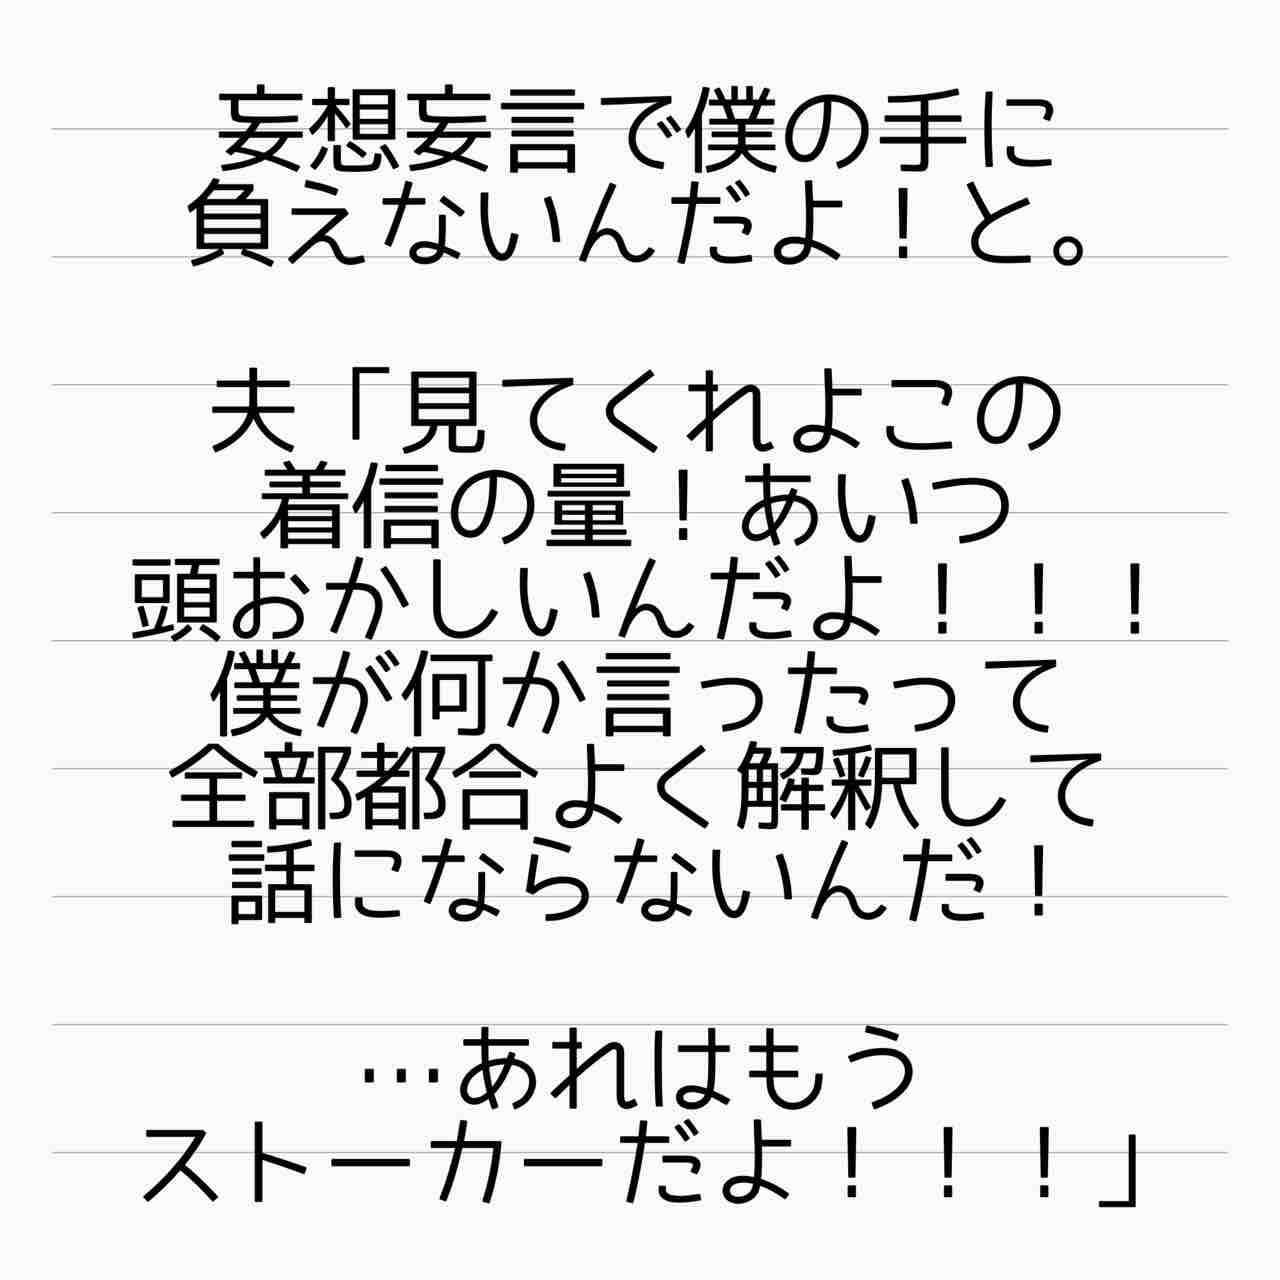 妄想妄言で僕の手に
負えないんだよ！と。
夫「見てくれよこの
着信の量！あいつ
頭おかしいんだよ！！！
僕が何か言ったって
全部都合よく解釈して
話にならないんだ！
…あれはもう
ストーカーだよ！！！」